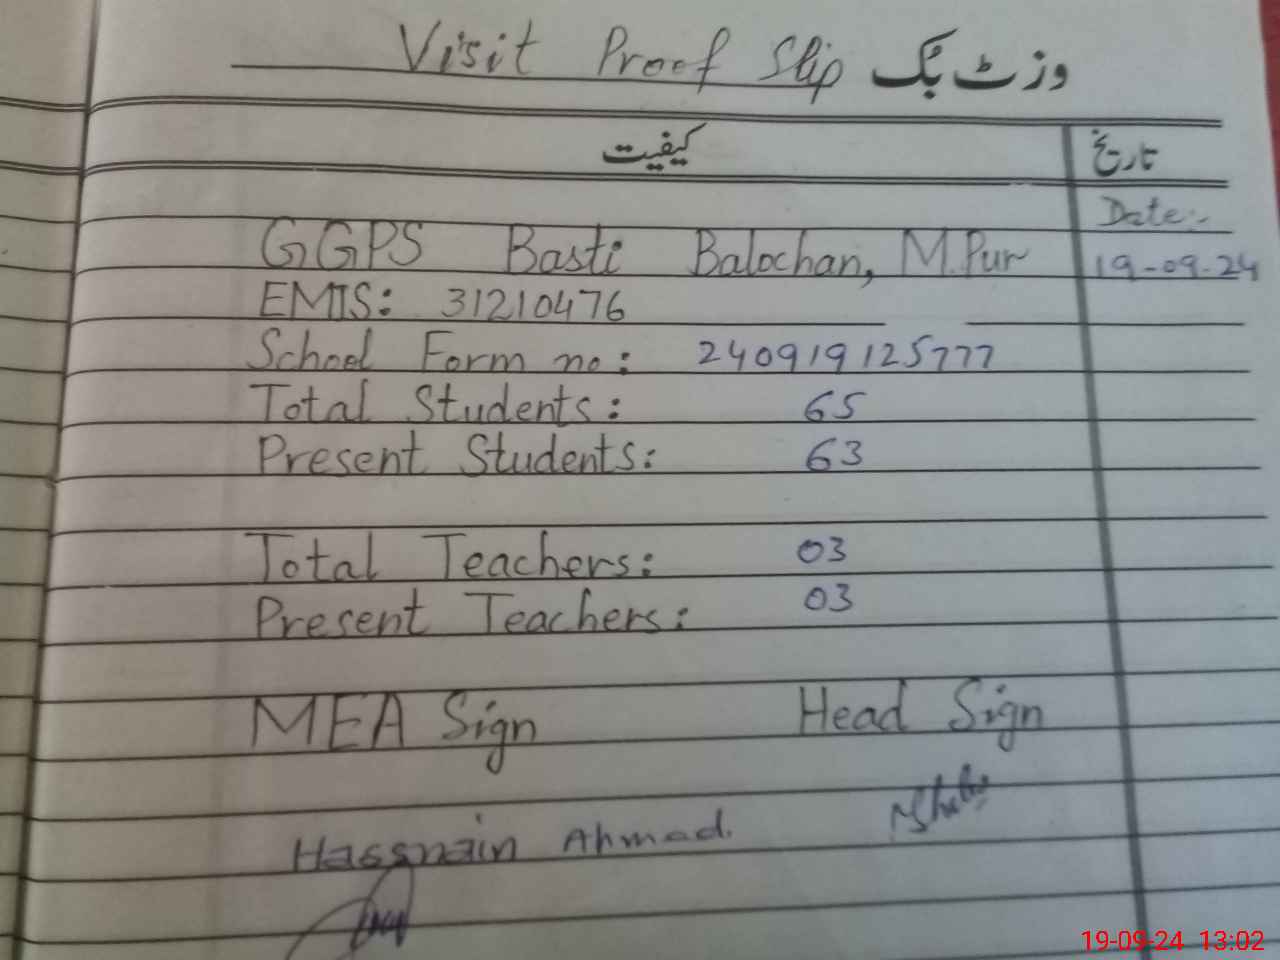 Visit Proof Slip وزٹ بک
کیفیت تاریخ
Date:-
GGPS Basti Balochan, M.Pur 19-09-24
EMIS: 31210476
School Form no: 240919125777
Total Students: 65
Present Students: 63
Total Teachers: 03
Present Teachers: 03
MEA Sign Head Sign
Hassnain Ahmad.
19-09-24 13:02